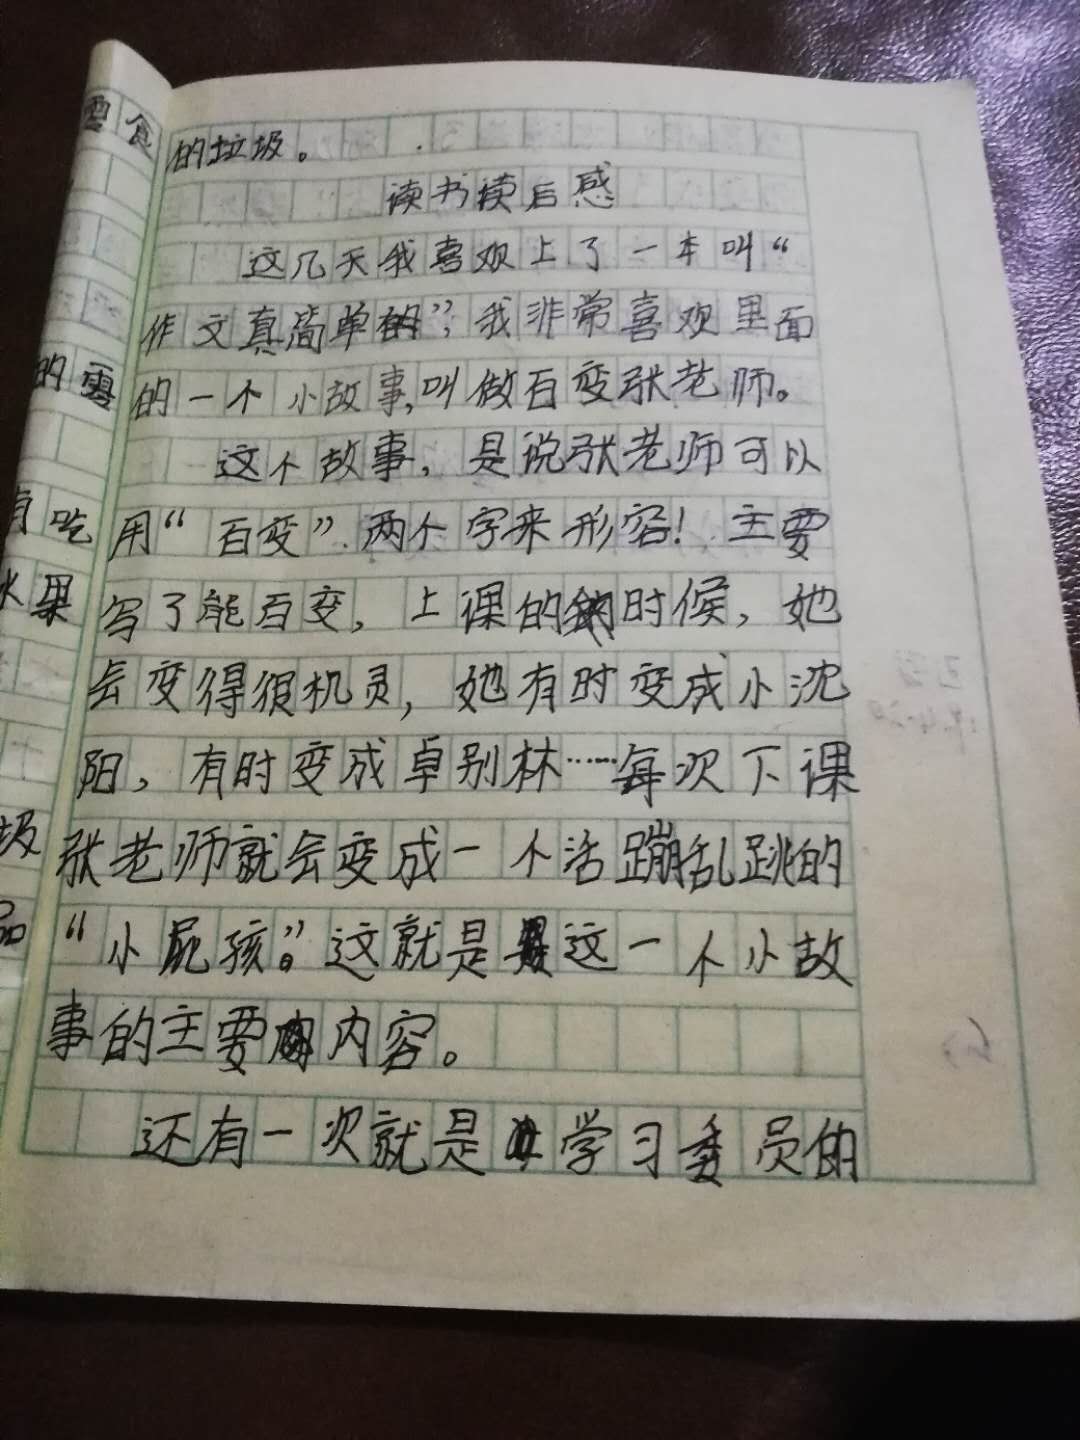 的垃圾。
读书读后感
这几天我喜欢上了一本叫“
作文真简单的”，我非常喜欢里面
的一个小故事,叫做百变张老师。
这个故事，是说张老师可以
用“百变”两个字来形容！主要
写了能百变，上课的时候，她
会变得很机灵，她有时变成小沈
阳，有时变成卓别林……每次下课
张老师就会变成一个活蹦乱跳的
“小屁孩”。这就是这一个小故
事的主要内容。
还有一次就是学习委员的
零食
的零
有吃
水果
圾
品